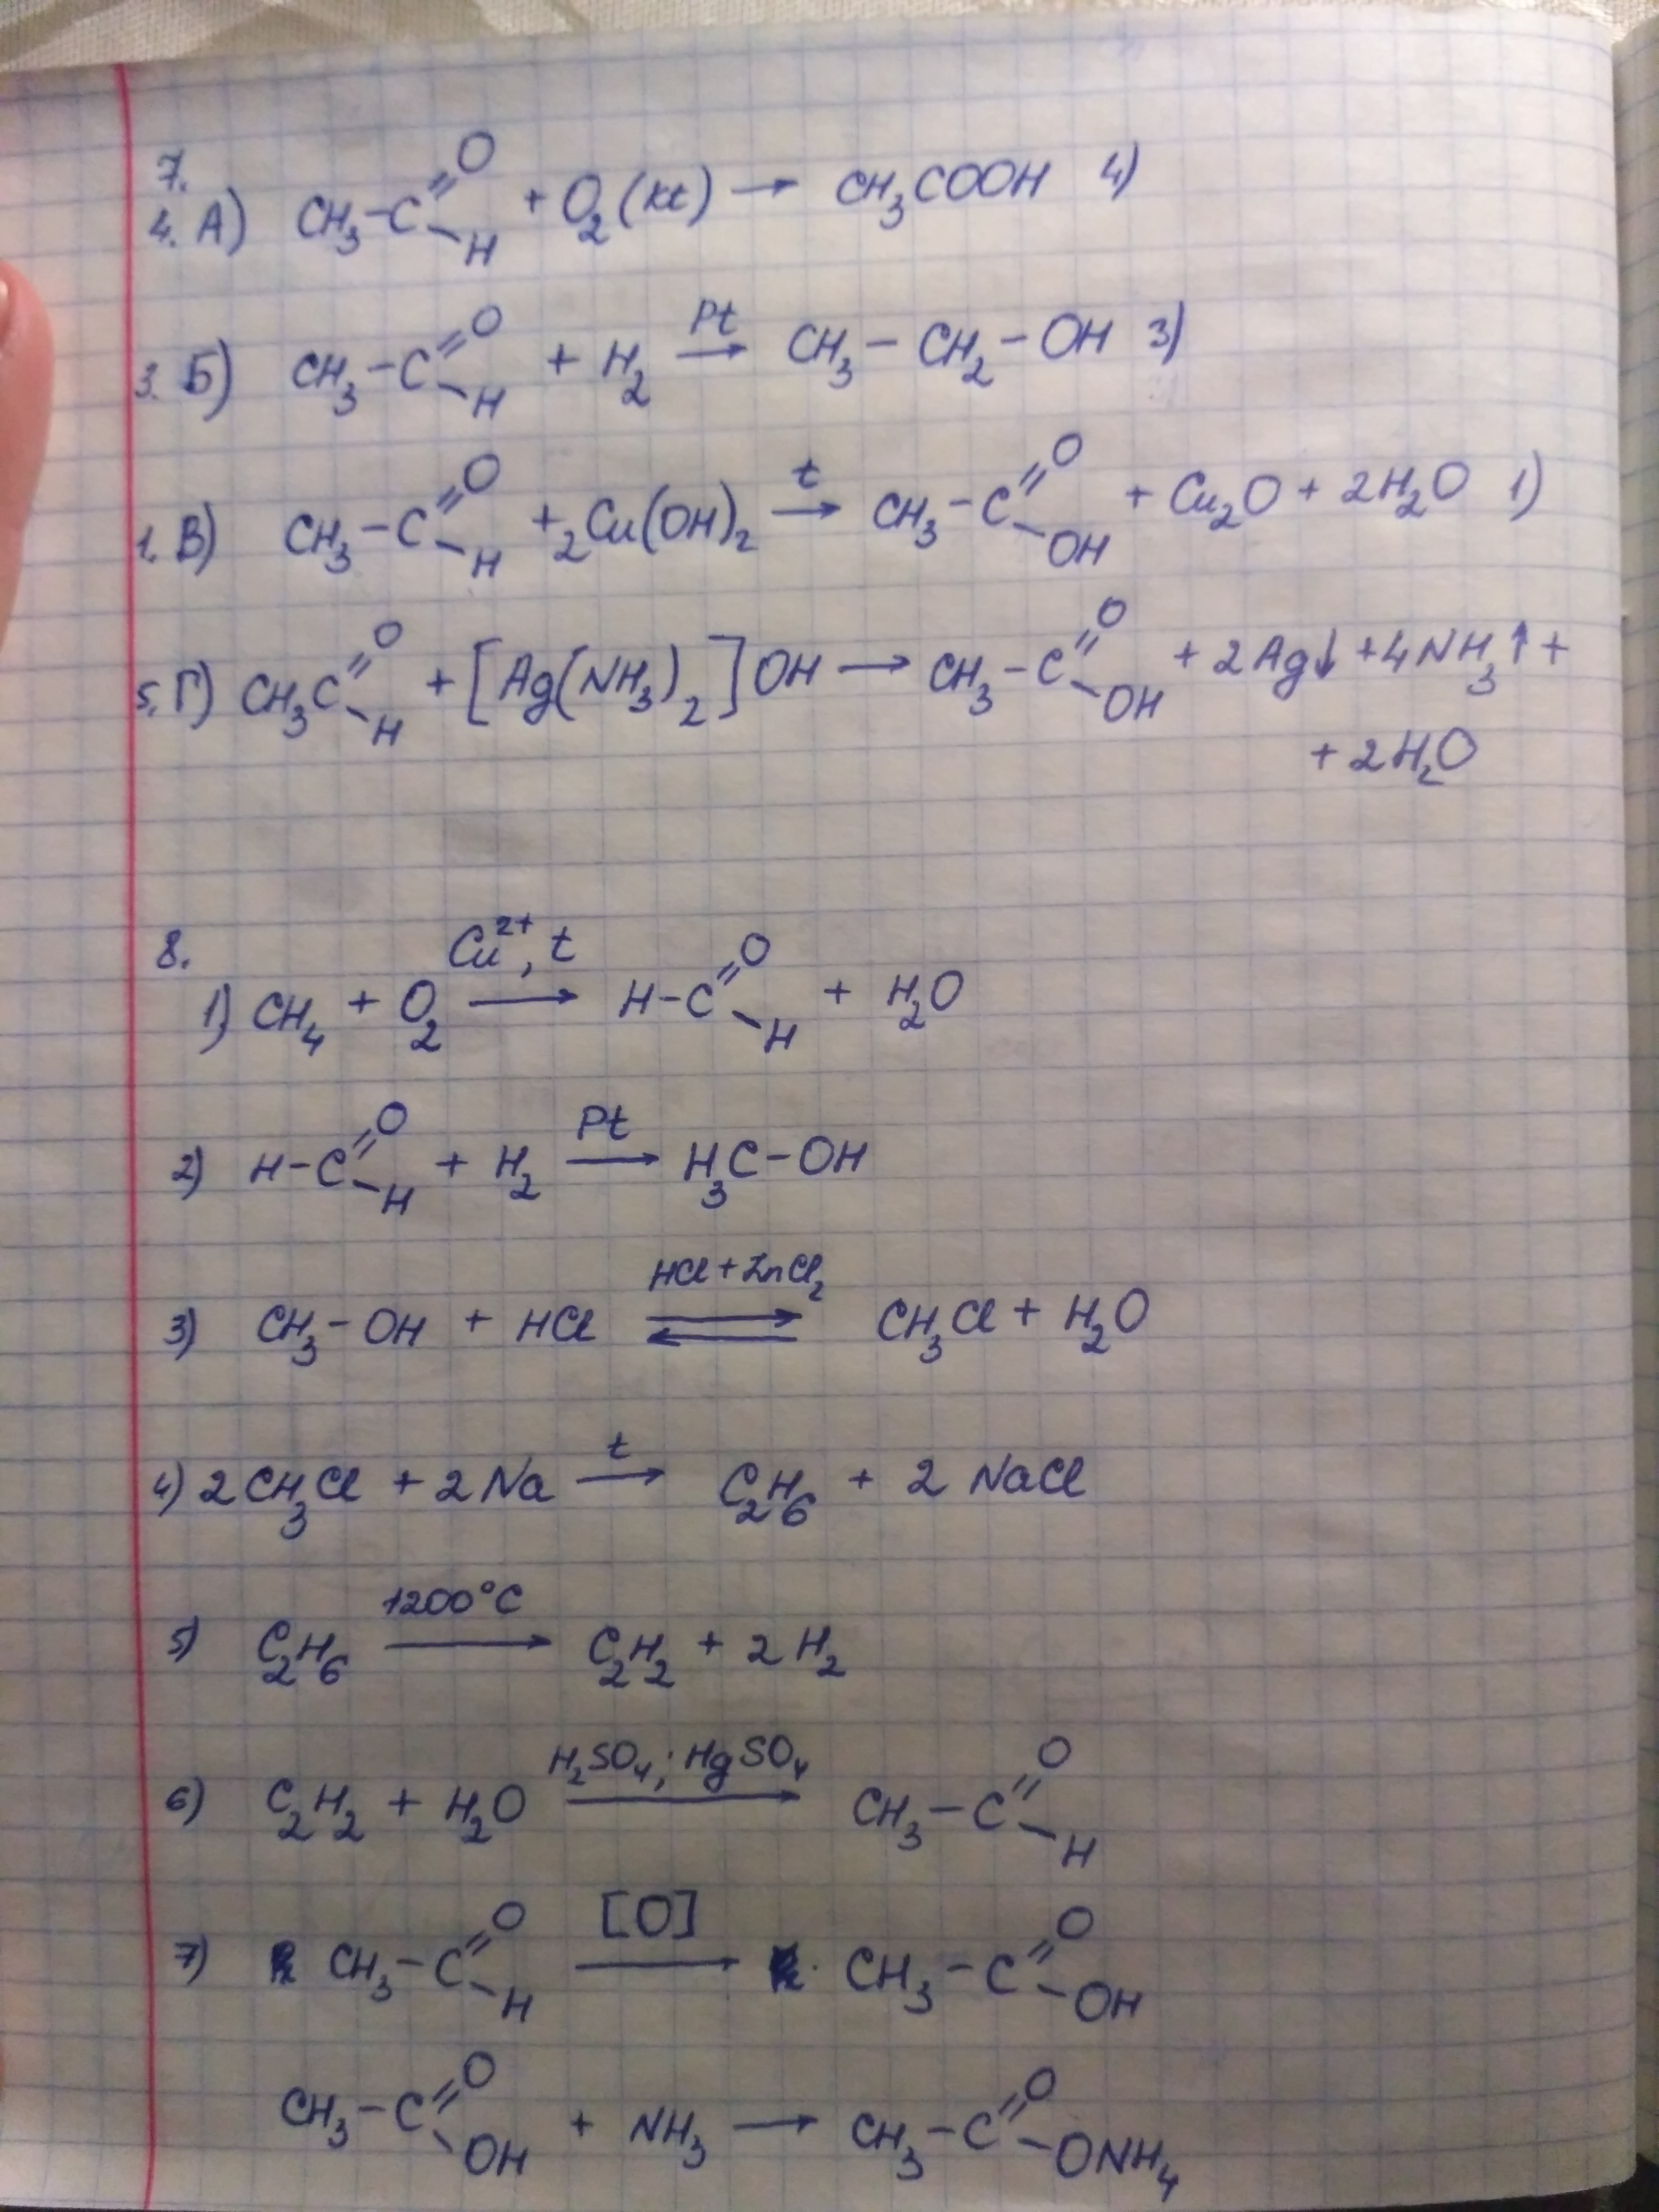 7.
4. А) CH₃-C(=O)-H + O₂ (kt) → CH₃COOH 4)
3. Б) CH₃-C(=O)-H + H₂ →(Pt) CH₃-CH₂-OH 3)
1. В) CH₃-C(=O)-H + 2Cu(OH)₂ →(t) CH₃-C(=O)-OH + Cu₂O + 2H₂O 1)
5. Г) CH₃C(=O)-H + [Ag(NH₃)₂]OH → CH₃-C(=O)-OH + 2Ag↓ + 4NH₃↑ +
+ 2H₂O
8.
1) CH₄ + O₂ →(Cu²⁺, t) H-C(=O)-H + H₂O
2) H-C(=O)-H + H₂ →(Pt) H₃C-OH
3) CH₃-OH + HCl ⇌(HCl + ZnCl₂) CH₃Cl + H₂O
4) 2CH₃Cl + 2Na →(t) C₂H₆ + 2NaCl
5) C₂H₆ →(1200°C) C₂H₂ + 2H₂
6) C₂H₂ + H₂O →(H₂SO₄; HgSO₄) CH₃-C(=O)-H
7) CH₃-C(=O)-H →([O]) CH₃-C(=O)-OH
CH₃-C(=O)-OH + NH₃ → CH₃-C(=O)-ONH₄